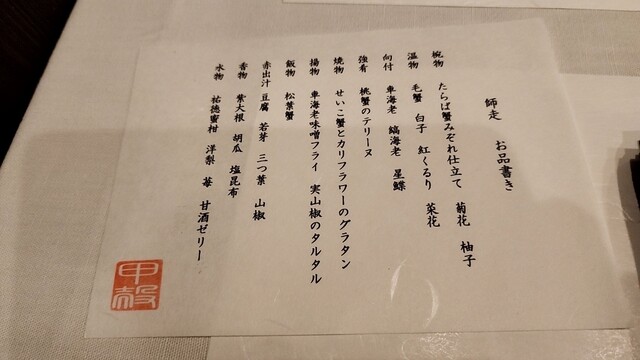 師走　お品書き
椀物　たらば蟹みぞれ仕立て　菊花　柚子
温物　毛蟹　白子　紅くるり　菜花
向付　車海老　縞海老　星鰈
強肴　桃蟹のテリーヌ
焼物　せいこ蟹とカリフラワーのグラタン
揚物　車海老味噌フライ　実山椒のタルタル
飯物　松葉蟹
赤出汁　豆腐　若芽　三つ葉　山椒
香物　紫大根　胡瓜　塩昆布
水物　祐徳蜜柑　洋梨　苺　甘酒ゼリー
甲殻